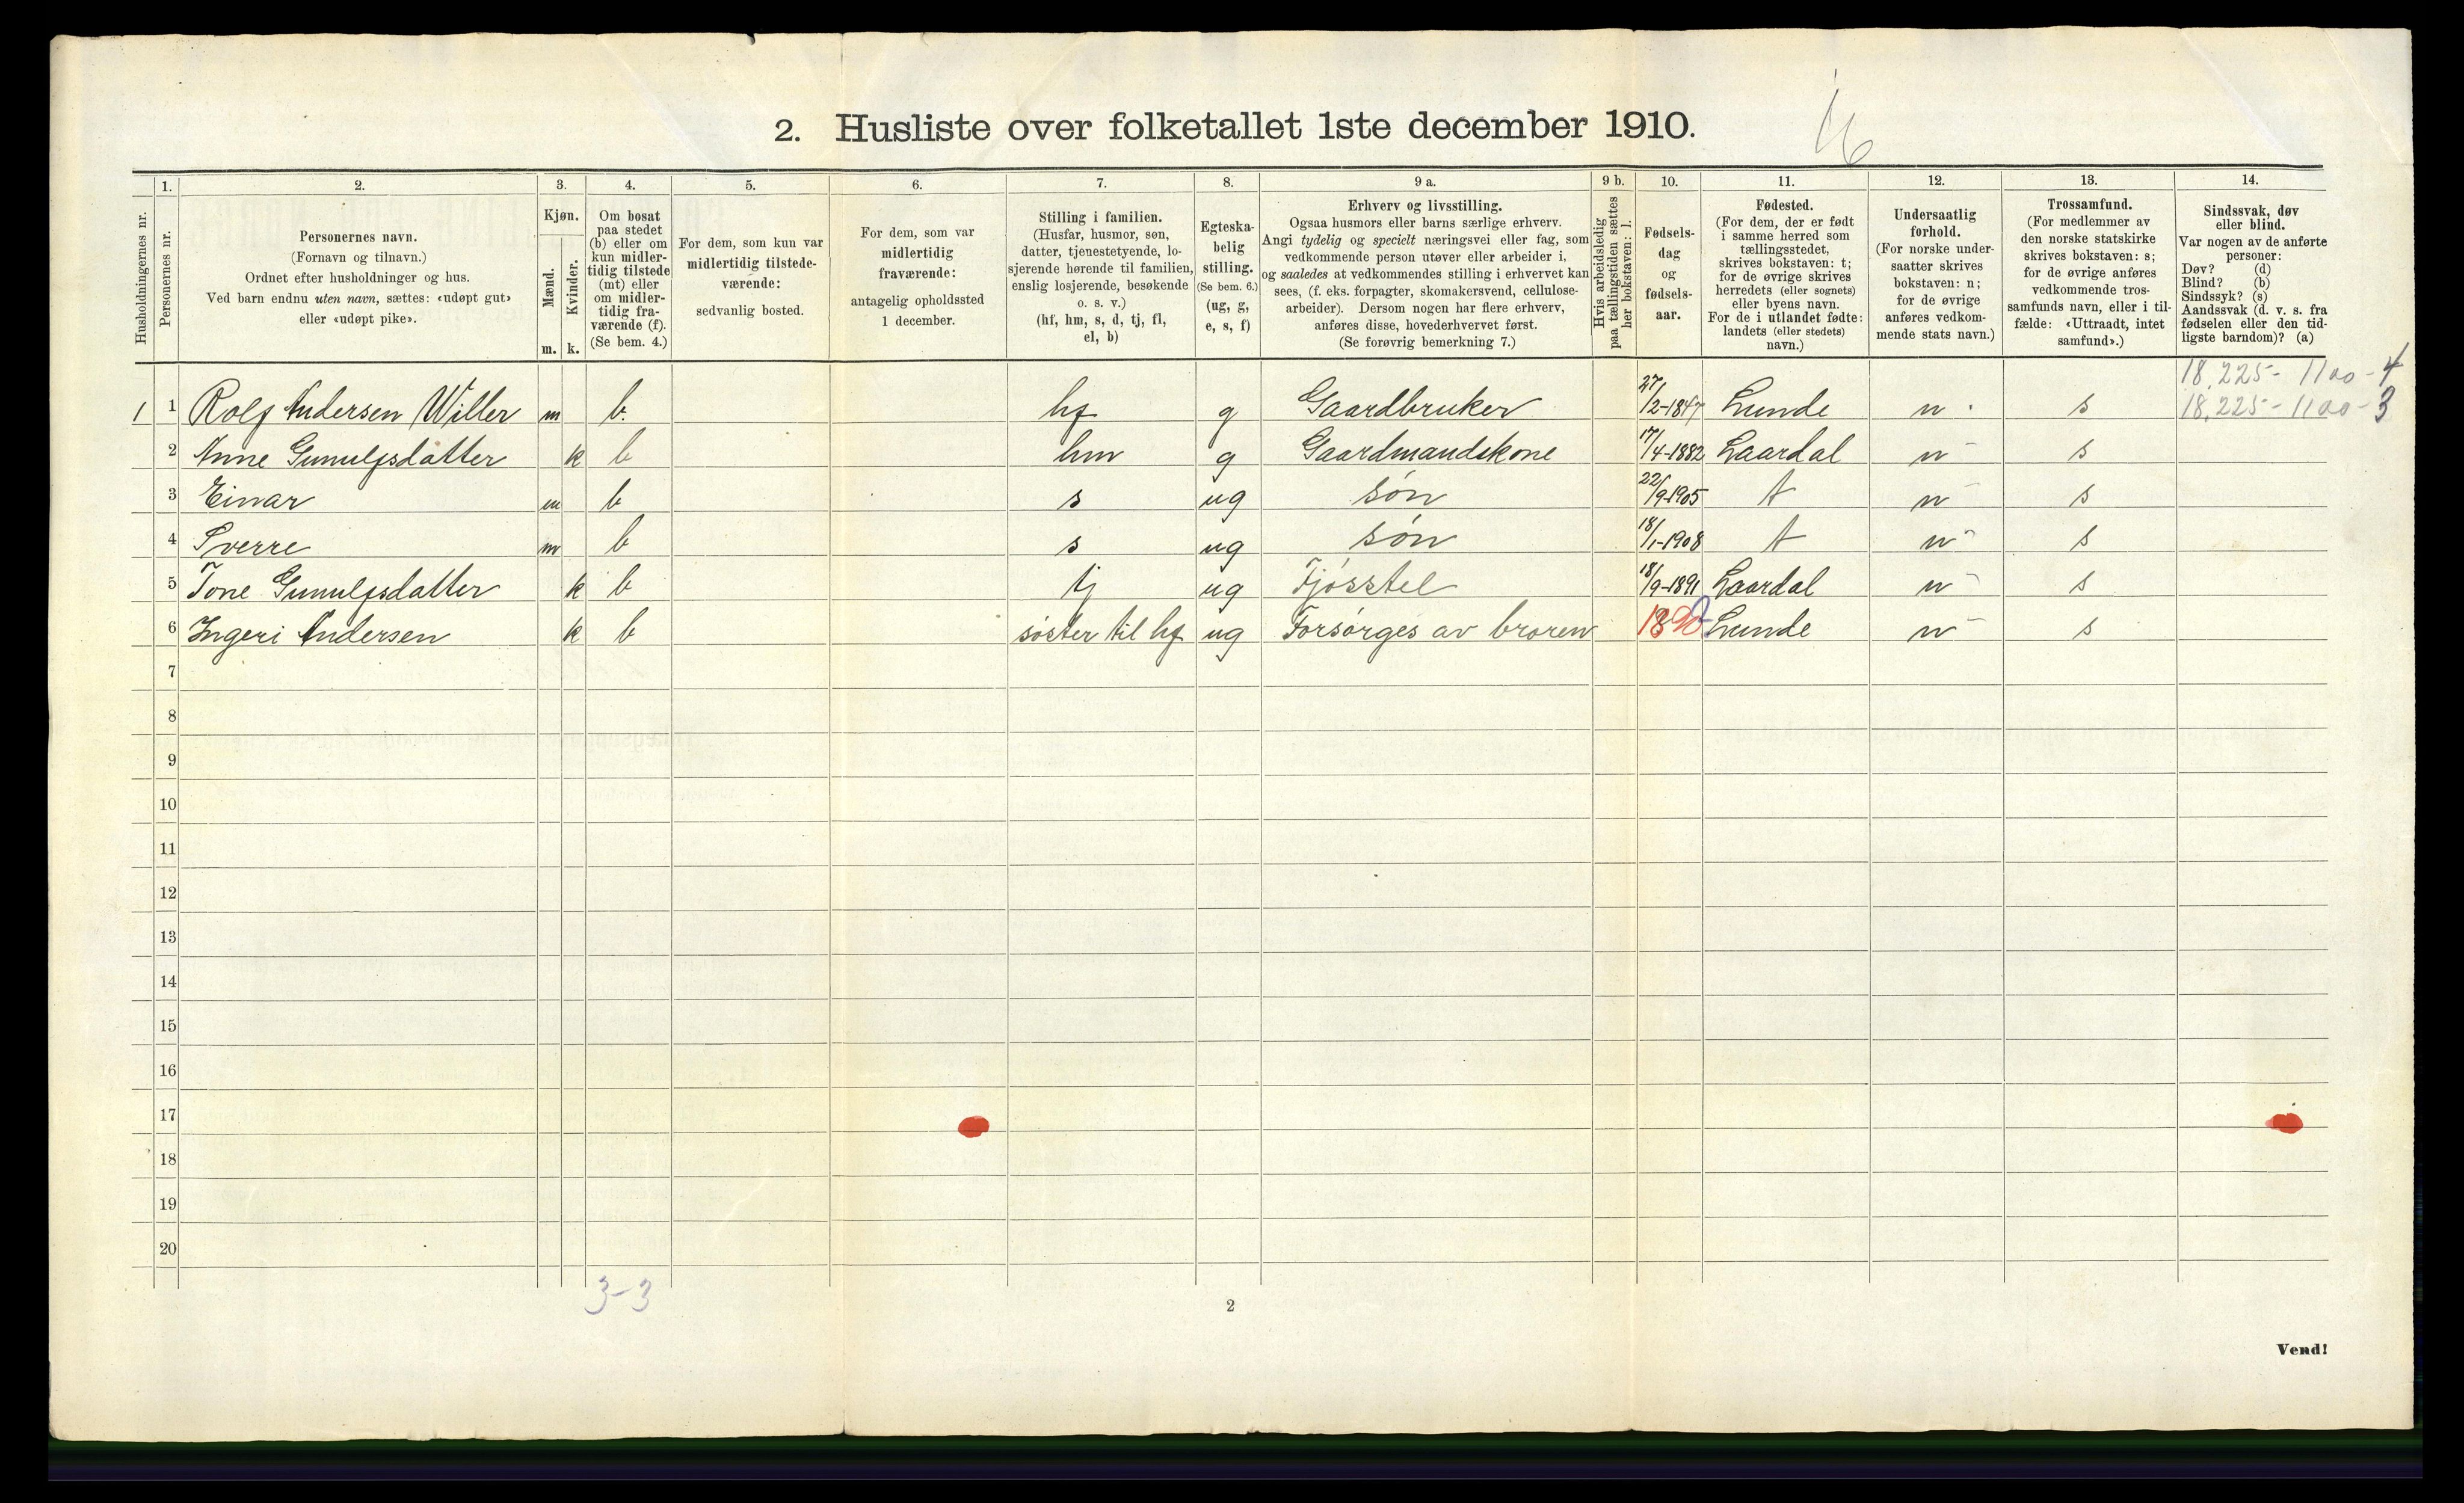 2. Husliste over folketallet 1ste december 1910.
16
Husholdningernes nr.
1.
Personernes nr.
2.
Personernes navn.
(Fornavn og tilnavn.)
Ordnet efter husholdninger og hus.
Ved barn endnu uten navn, sættes: «udøpt gut»
eller «udøpt pike».
3.
Kjøn.
Mænd.
Kvinder.
m. k.
4.
Om bosat
paa stedet
(b) eller om
kun midler-
tidig tilstede
(mt) eller
om midler-
tidig fra-
værende (f).
(Se bem. 4.)
5.
For dem, som kun var
midlertidig tilstede-
værende:
sedvanlig bosted.
6.
For dem, som var
midlertidig
fraværende:
antagelig opholdssted
1 december.
7.
Stilling i familien.
(Husfar, husmor, søn,
datter, tjenestetyende, lo-
sjerende hørende til familien,
enslig losjerende, besøkende
o. s. v.)
(hf, hm, s, d, tj, fl,
el, b)
8.
Egteska-
belig
stilling.
(Se bem. 6.)
(ug, g,
e, s, f)
9 a.
Erhverv og livsstilling.
Ogsaa husmors eller barns særlige erhverv.
Angi tydelig og specielt næringsvei eller fag, som
vedkommende person utøver eller arbeider i,
og saaledes at vedkommendes stilling i erhvervet kan
sees, (f. eks. forpagter, skomakersvend, cellulose-
arbeider). Dersom nogen har flere erhverv,
anføres disse, hovederhvervet først.
(Se forøvrig bemerkning 7.)
9 b.
Hvis arbeidsledig
paa tællingstiden sættes
her bokstaven: l.
10.
Fødsels-
dag
og
fødsels-
aar.
11.
Fødested.
(For dem, der er født
i samme herred som
tællingsstedet,
skrives bokstaven: t;
for de øvrige skrives
herredets (eller sognets)
eller byens navn.
For de i utlandet fødte:
landets (eller stedets)
navn.)
12.
Undersaatlig
forhold.
(For norske under-
saatter skrives
bokstaven: n;
for de øvrige
anføres vedkom-
mende stats navn.)
13.
Trossamfund.
(For medlemmer av
den norske statskirke
skrives bokstaven: s;
for de øvrige anføres
vedkommende tros-
samfunds navn, eller i til-
fælde: «Uttraadt, intet
samfund».)
14.
Sindssvak, døv
eller blind.
Var nogen av de anførte
personer:
Døv? (d)
Blind? (b)
Sindssyk? (s)
Aandssvak (d. v. s. fra
fødselen eller den tid-
ligste barndom)? (a)
18,225- 1100-4
1 1 Rolf Andersen Willer m b. hf g Gaardbruker 27/2-1847 Lunde n. s 18,225-1100-3
2 Anne Gunulfsdatter k b hm g Gaardmandskone 17/4-1882 Laardal n s
3 Einar m b s ug søn 22/9-1905 t n s
4 Sverre m b s ug søn 18/1-1908 t n s
5 Tone Gunulfsdatter k b tj ug Fjøsstel 18/9-1891 Laardal n s
6 Ingeri Andersen k b søster til hf ug Forsørges av broren Lunde n s
7
8
9
10
11
12
13
14
15
16
17
18
19
20
3-3
2
Vend!